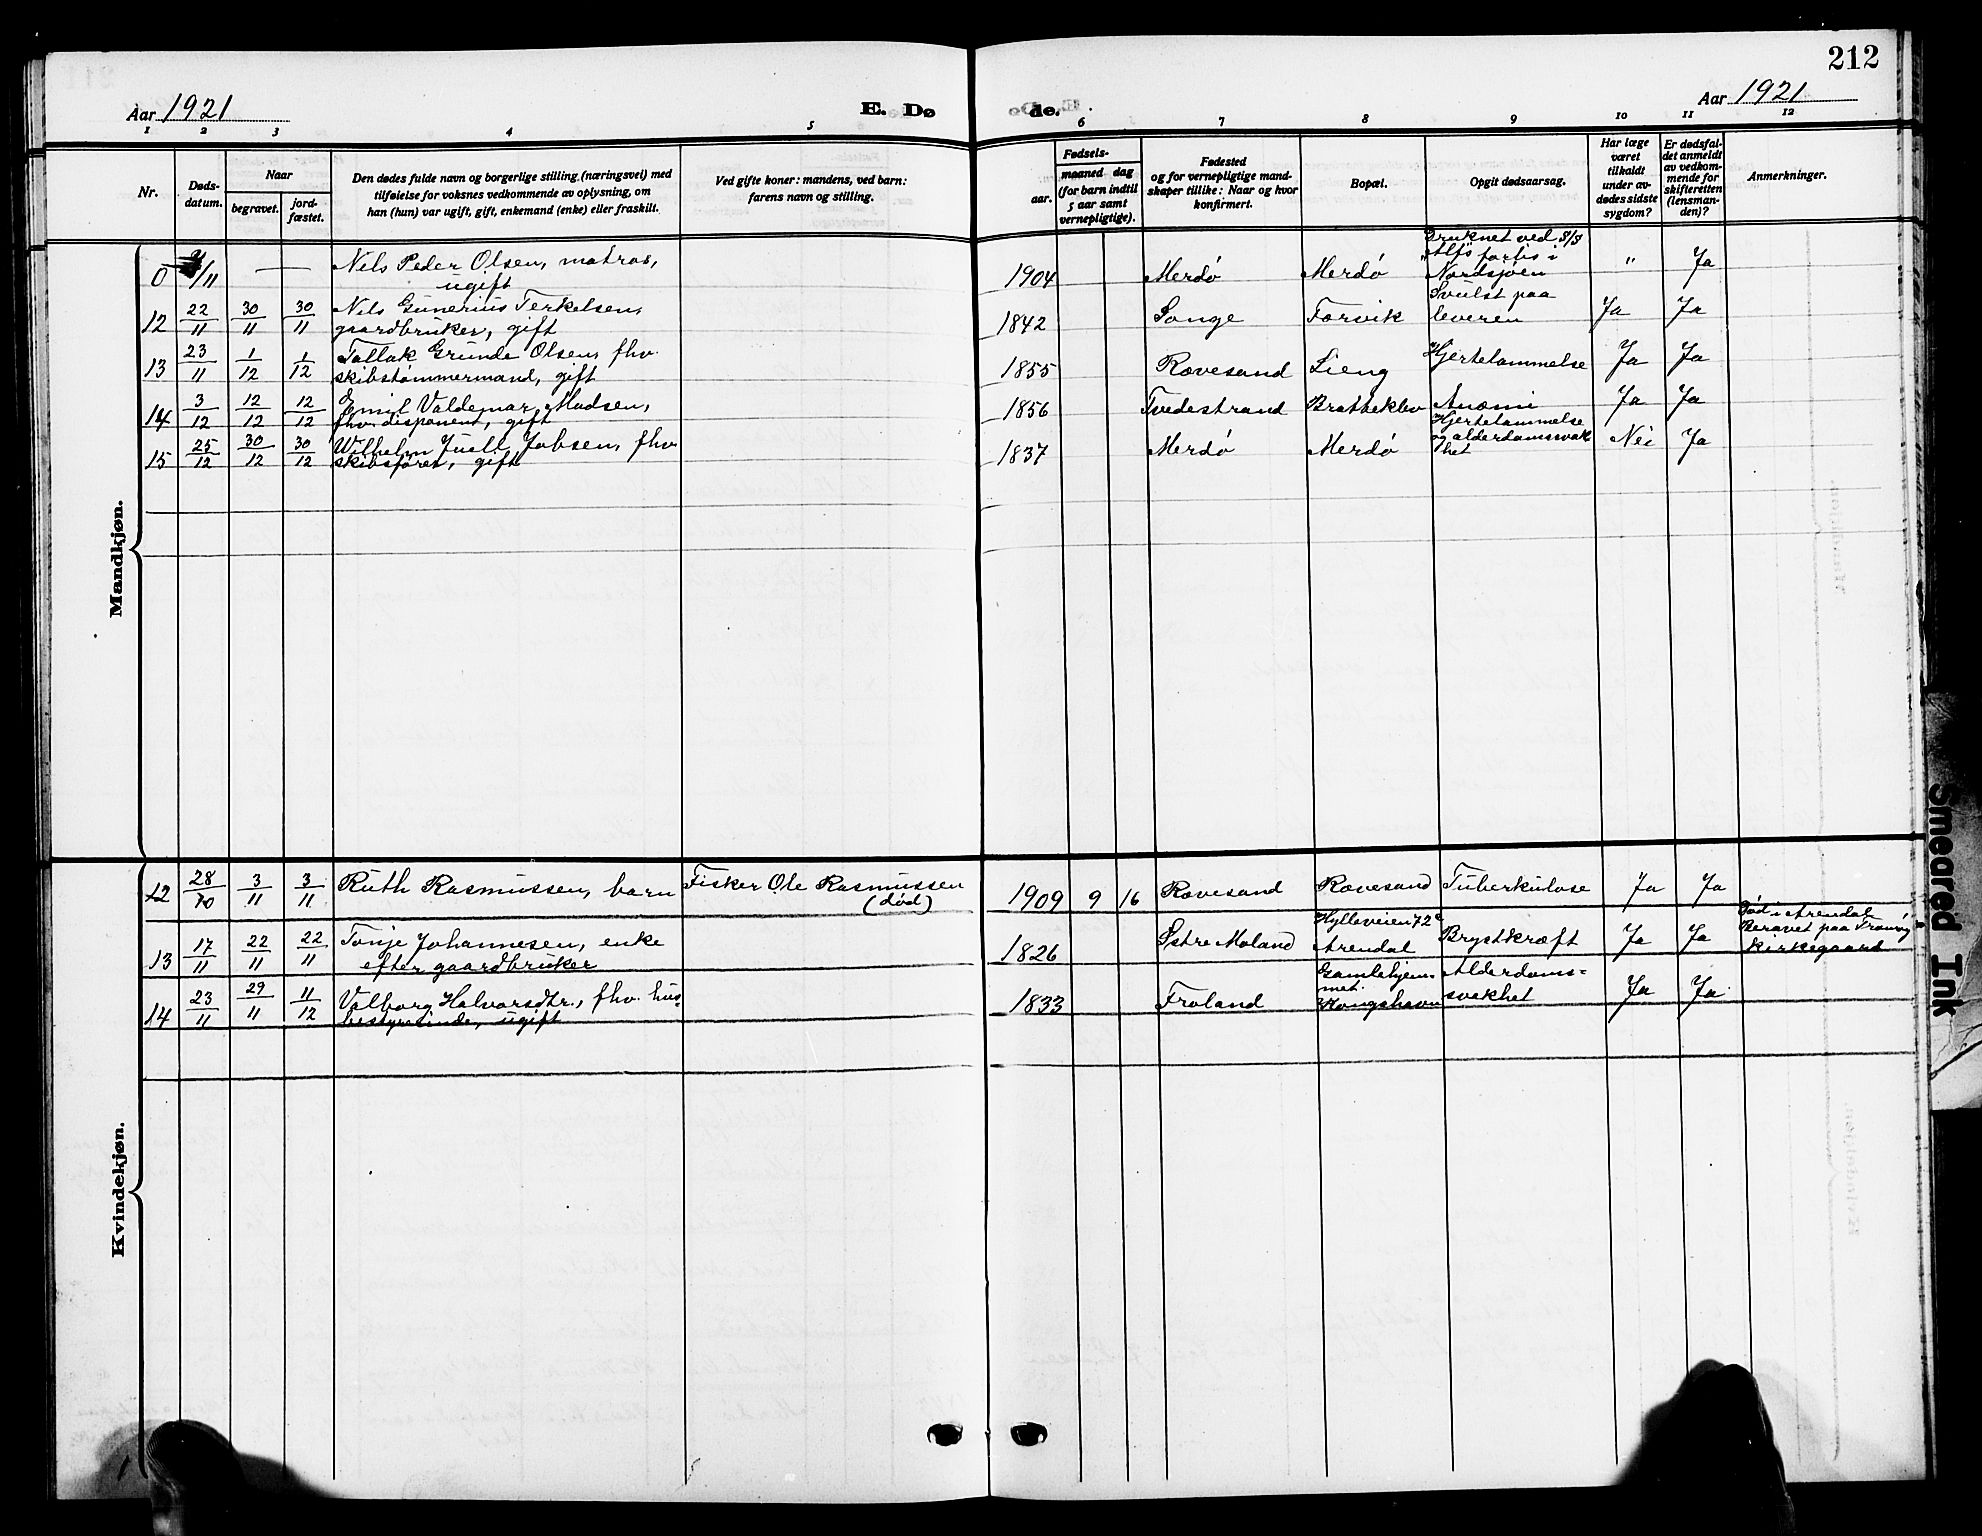 212
Aar 1921
E. Dø
de.
Aar 1921
1 2 3 4 5 6 7 8 9 10 11 12
Nr.
Døds-
datum.
Naar
begravet.
jord-
fæstet.
Den dødes fulde navn og borgerlige stilling (næringsvei) med
tilføielse for voksnes vedkommende av oplysning, om
han (hun) var ugift, gift, enkemand (enke) eller fraskilt.
Ved gifte koner: mandens, ved barn:
farens navn og stilling.
Fødsels-
aar.
maaned dag
(for barn indtil
5 aar samt
vernepligtige).
Fødested
og for vernepligtige mand-
skaper tillike: Naar og hvor
konfirmert.
Bopæl.
Opgit dødsaarsag.
Har læge
været
tilkaldt
under av-
dødes sidste
sygdom?
Er dødsfal-
det anmeldt
av vedkom-
mende for
skifteretten
(lensman-
den)?
Anmerkninger.
Mandkjøn.
0 /11 — Nels Peder Olsen, matros,
ugift
1904 Merdø Merdø
Druknet ved S/S
"Alfs" forlis i
Nordsjøen
" Ja
12 22/11 30/11 30/11 Nils Gunerius Terkelsen,
gaardbruker, gift
1842 Songe Færvik
Svulst paa
leveren
Ja Ja
13 23/11 1/12 1/12 Tallak Grunde Olsen, fhv.
skibstømmermand, gift
1855 Rævesand Lieng Hjertelammelse Ja Ja
14 3/12 12/12 12/12 Emil Valdemar Madsen,
fhv. disponent, gift
1856 Tvedestrand Bratteklev Anæmi Ja Ja
15 25/12 30/12 30/12 Wilhelm Juell Jebsen, fhv.
skibsfører, gift
1837 Merdø Merdø
Hjertelammelse
og alderdomssvak
het
Nei Ja
Kvindekjøn.
12 28/10 3/11 3/11 Ruth Rasmussen, barn Fisker Ole Rasmussen
(død)
1909 9 16 Rævesand Rævesand Tuberkulose Ja Ja
13 17/11 22/11 22/11 Tonje Johannesen, enke
efter gaardbruker
1826 Østre Moland
Hylleveien 72
Arendal
Brystkræft Ja Ja
Død i Arendal
Beravet paa Tromøy
kirkegaard
14 23/11 29/11 11/12 Valborg Halvorsdtr., fhv. hus-
bestyrerinde, ugift
1833 Froland
Gamlehjem-
met.
Kongshavn
Alderdoms-
svakhet
Ja Ja
Smeared Ink